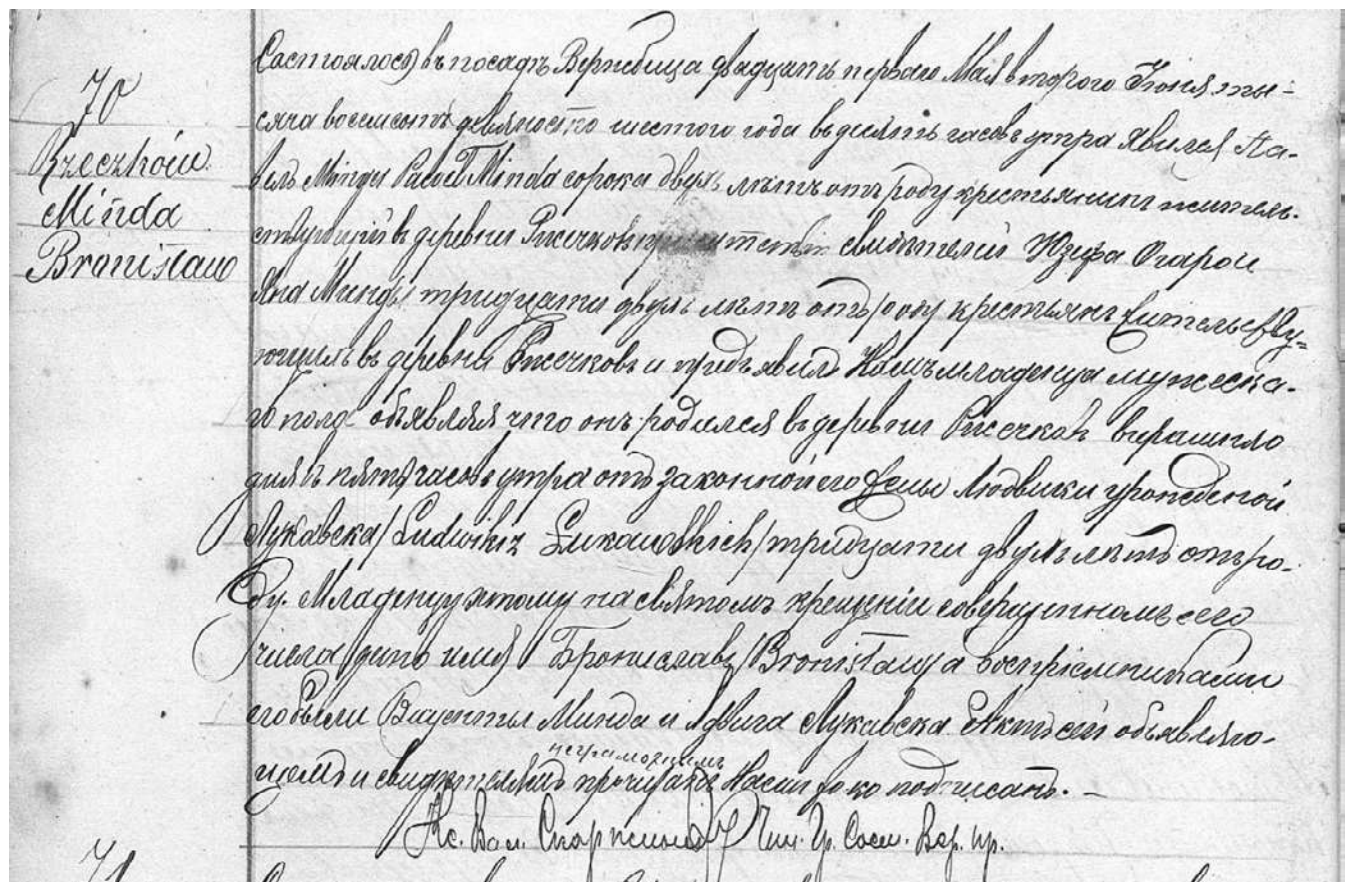 70
Rzeczków
Minda
Bronisław
Состоялось въ посадѣ Вержбица двадцать перваго Мая второго Іюня ты-
сяча восемсотъ девяносто шестого года въ девять часовъ утра явился Па-
велъ Минда Paweł Minda сорока двухъ лѣтъ отъ роду крестьянинъ житель-
ствующій въ деревни Ржечковъ свидѣтелей Юзефа Огарои
Яна Минды тридцати двухъ лѣтъ отъ роду крестьянъ жительству=
ющихъ въ деревни Ржечковъ и предъявилъ Намъ младенца мужеска-
го пола объявляя что онъ родился въ деревни Ржечковъ вчерашняго
дня въ пять часовъ утра отъ законной его жены Людвики урожденой
Лукавска /Ludwika Łukawskich/ тридцати двухъ лѣтъ отъ ро-
ду. Младенцу этому на святомъ крещеніи совершенномъ сего
числа дано имя Брониславъ /Bronisław/ а воспріемниками
его были Вицентый Минда и Ядвига Лукавска. Актъ сей объявляю-
щему и свидѣтелямъ неграмотнымъ прочитанъ Нами только подписанъ. -
Кс. Вал. Чин. Гр. Сост. Вер. пр.
71